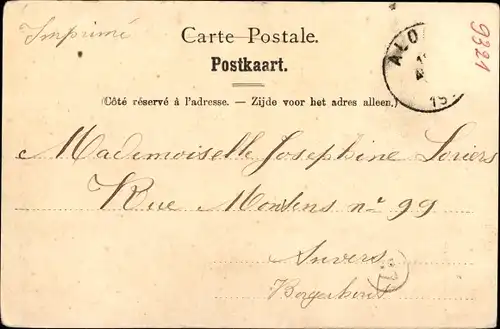 Imprimé
Carte Postale.
Postkaart.
(Côté réservé à l'adresse. — Zijde voor het adres alleen.)
ALO
19
9321
Mademoiselle Josephine Soriers
Rue Moulens nº 99
Anvers
Borgerhout